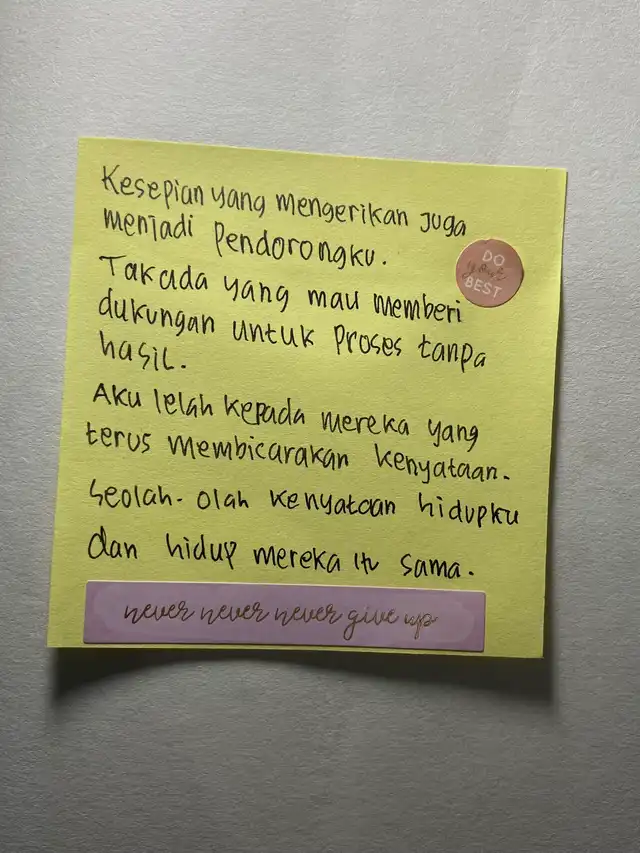 Kesepian yang mengerikan juga
menjadi pendorongku.
DO
your
BEST
Tak ada yang mau memberi
dukungan untuk proses tanpa
hasil.
Aku lelah kepada mereka yang
terus membicarakan kenyataan.
Seolah-olah kenyataan hidupku
dan hidup mereka itu sama.
never never never give up